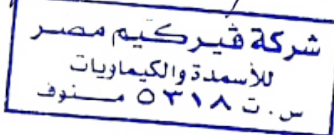 شركة ڤيركيم مصر
للأسمدة والكيماويات
س . ت ٥٣١٨ منوف